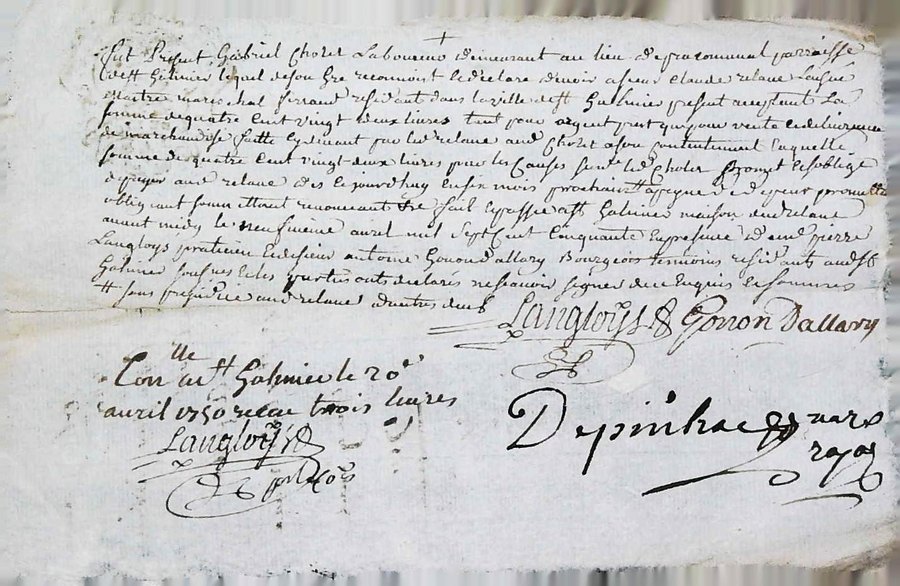 fut Present Gabriel Cholet Laboureur demeurant au lieu de paroisse
de St Galmier lequel de son Gre reconnoist et declare devoir a sieur Claude relave
Maitre marechal ferrand residant dans la ville de St Galmier present acceptant La
somme de quatre Cent vingt deux livres tant pour argent prest que pour vente et delivrance
de marchandise faitte cydevant par led relave aud Cholet a son Contentement Laquelle
somme de quatre Cent vingt deux livres pour les Causes led Cholet promet et soblige
a payer aud relave des ce jourdhuy en six mois prochain a peyne de
obligeant soumettant renonceant fait et passé a St Galmier maison dud relave
avant midy le neufvieme avril mil sept Cent Cinquante en presence de pierre
Langloys praticien et de sieur antoine Gonon Dallary Bourgeois temoins residants aud St
Galmier soussignes et les parties ont declarés ne scavoir signer de ce Enquis et sommés
sans prejudice aud relave dautres deubs
Langloys Gonon Dallary
Con a St Galmier le 20e
avril 1750 recue trois livres
Langloys
Depinhac